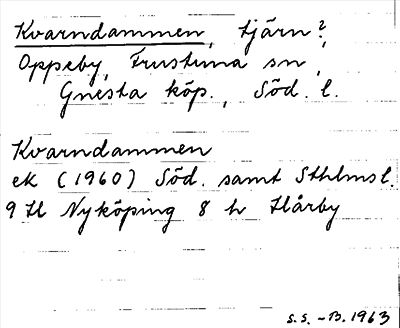 Kvarndammen, tjärn?,
Oppeby, Frustuna sn,
Gnesta köp., Söd. l.
Kvarndammen
ek (1960) Söd. samt Sthlms l.
9 H Nyköping 8 h Hårby
S.S. - B. 1963